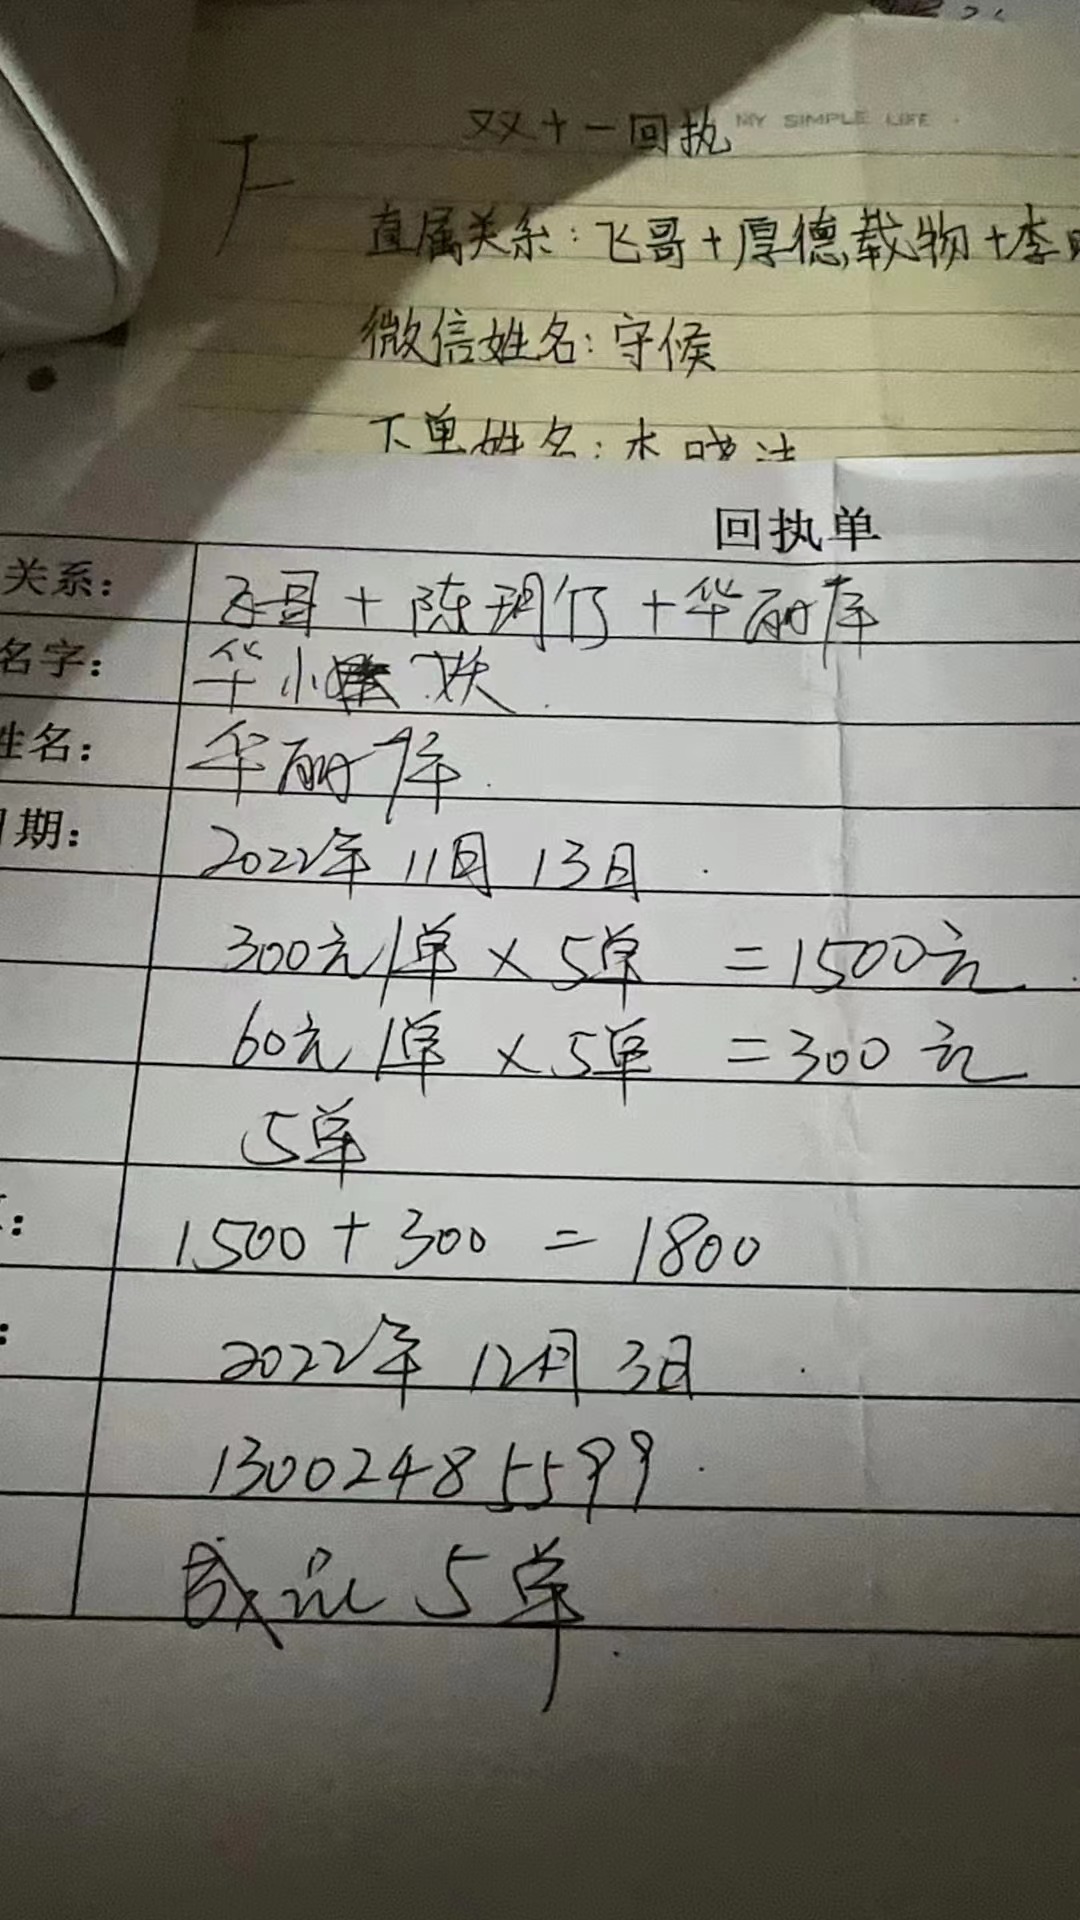 双十一回执 MY SIMPLE LIFE
直属关系:飞哥+厚德载物+李
微信姓名:守候
下单姓名:木晓
回执单
关系: 飞哥+陈玥仔+华丽库
名字: 华小妖
姓名: 华丽库
期: 2022年11月13日
300元/单×5单=1500元
60元/单×5单=300元
5单
: 1500+300=1800
: 2022年12月3日
13002485599
5单